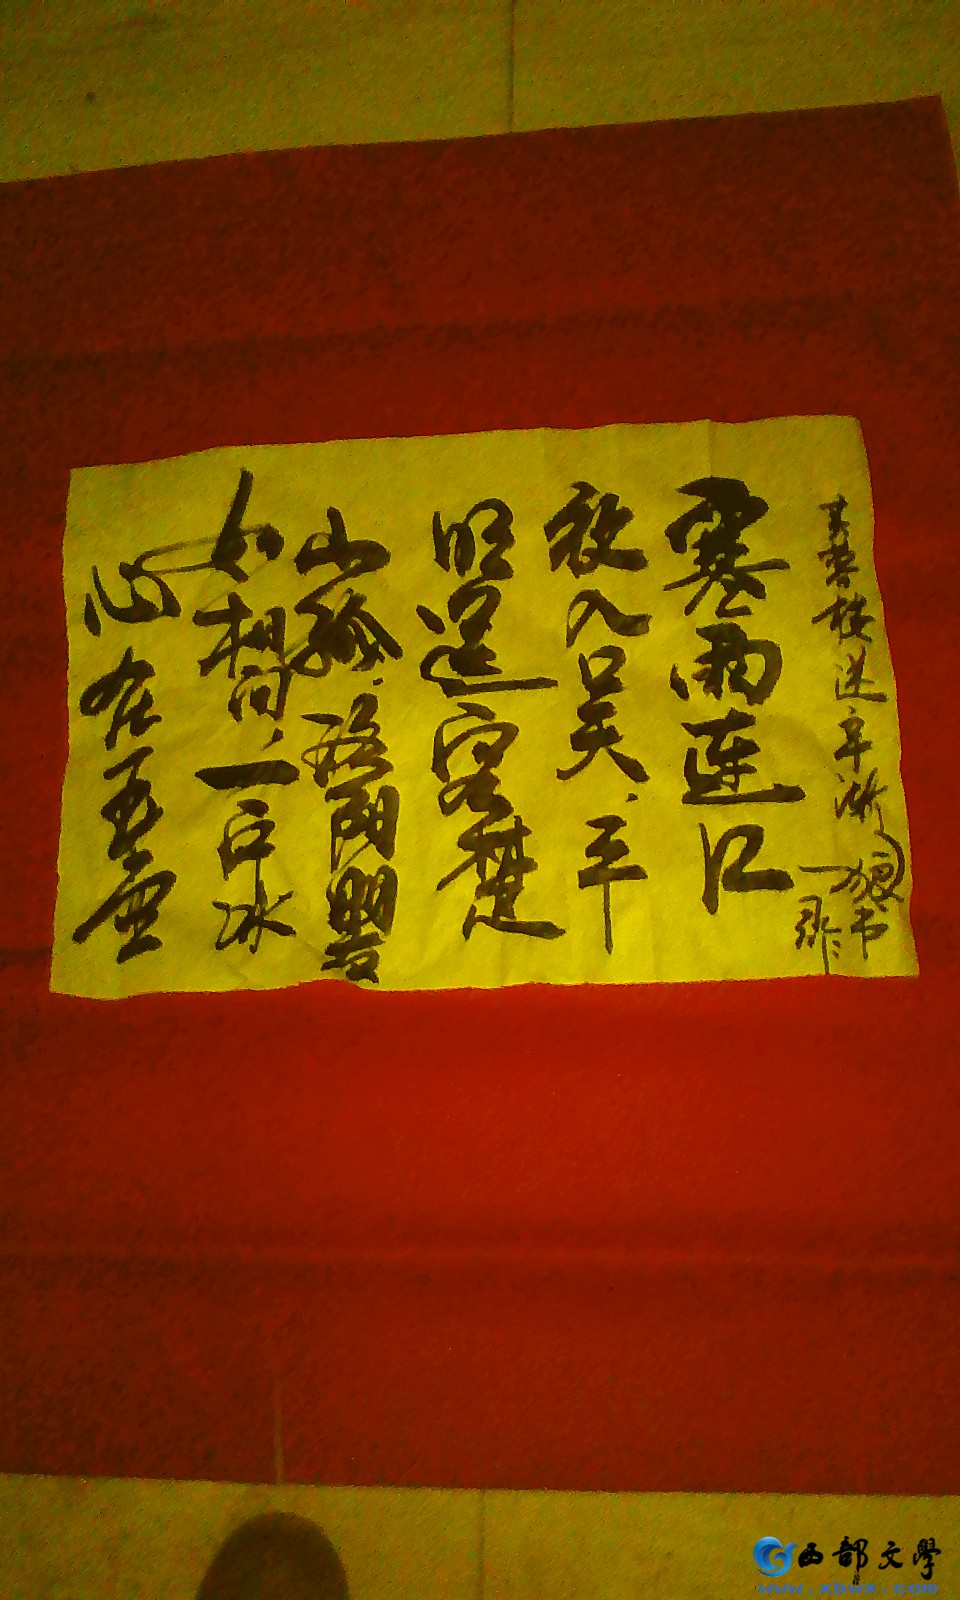 芙蓉楼送辛渐
寒雨连江
夜入吴、平
明送客楚
山孤、洛阳親友
如相问、一片冰
心在玉壶
西部文學
www.xbwx.com